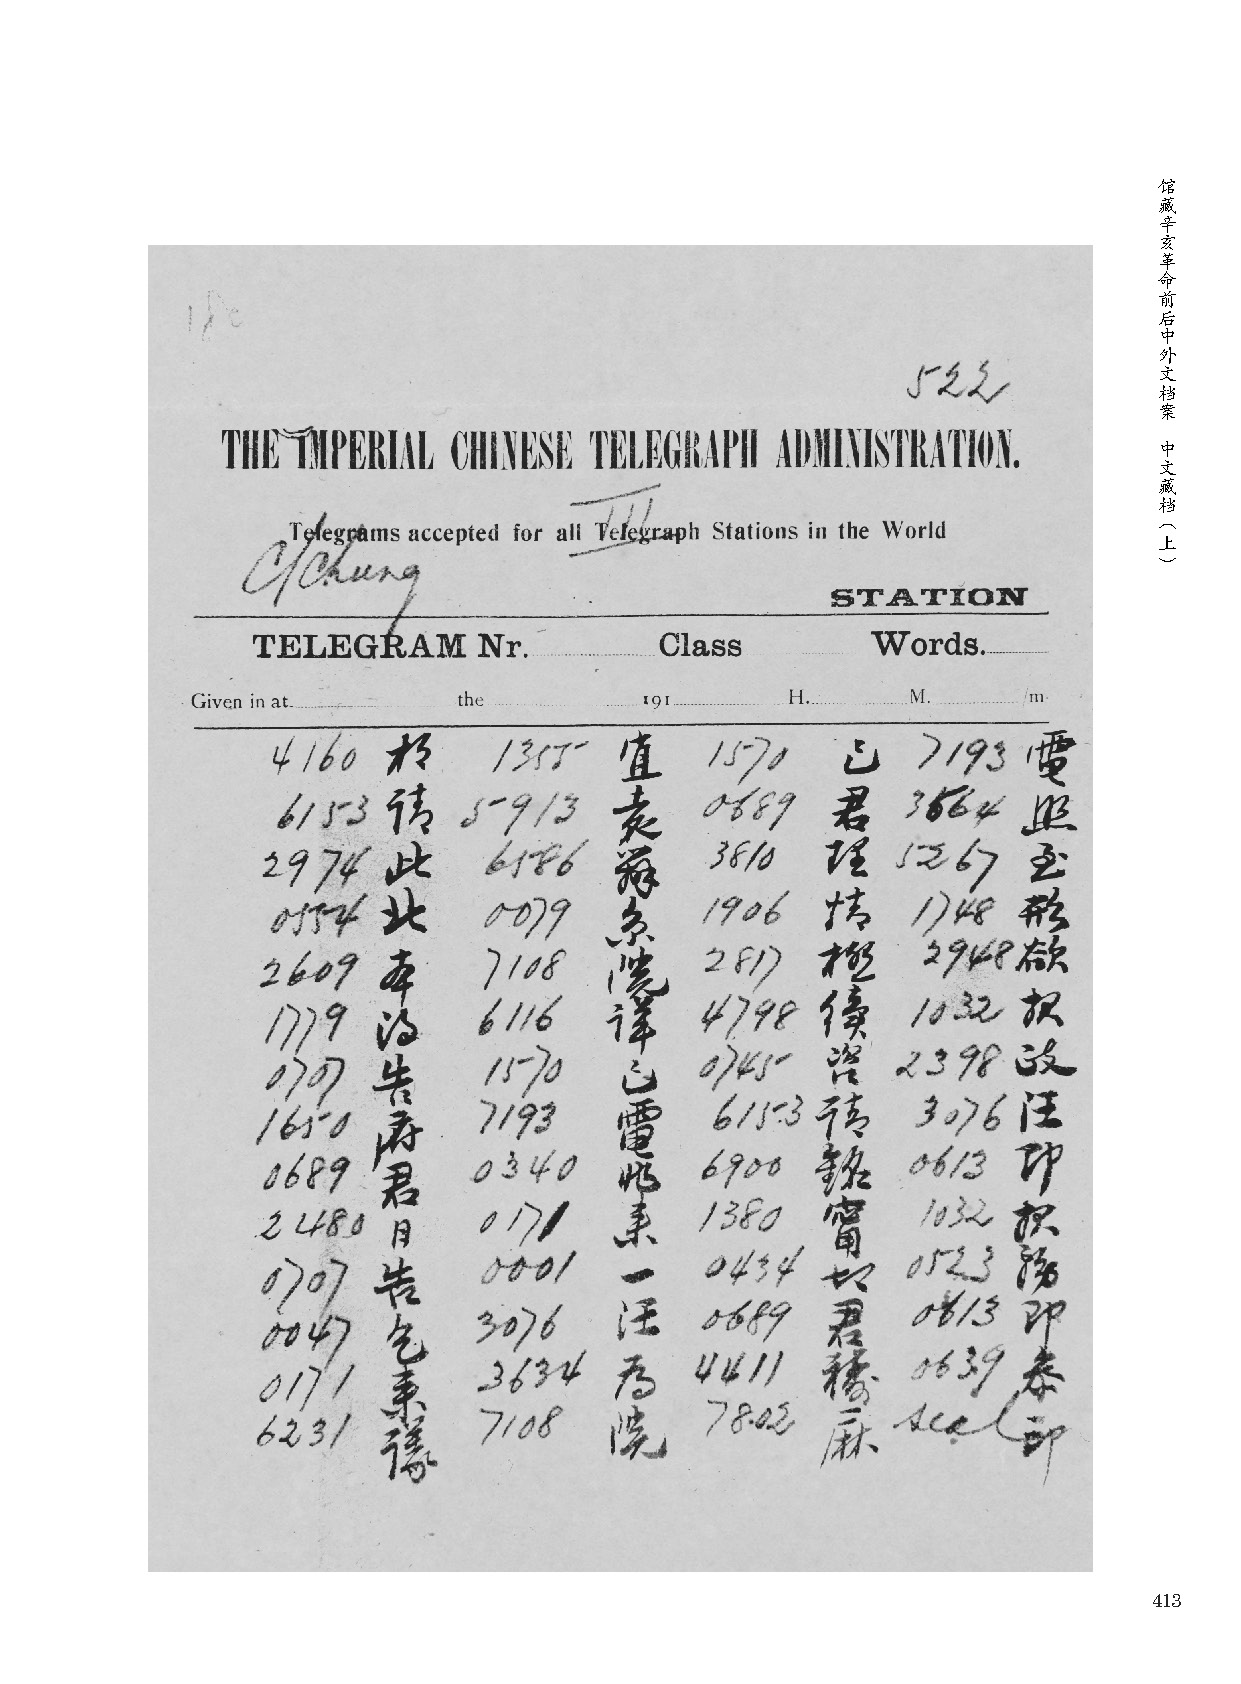 馆藏辛亥革命前后中外文档案 中文藏档(上)
522
THE IMPERIAL CHINESE TELEGRAPH ADMINISTRATION.
Telegrams accepted for all Telegraph Stations in the World
III
C/Chung
STATION
TELEGRAM Nr. Class Words.
Given in at the 191 H. M. /m
4160 1355 直 1570 已 7193 電
6153 請 5913 袁 0689 君 3564
2974 此 6586 辭 3810 理 5267 至
0554 北 0079 1906 情 1748
2609 本 7108 院 2817 極 2948 欲
1779 得 6116 詳 4798 1032
0707 告 1570 已 0745 咨 2398 政
1650 府 7193 電 6153 請 3076 汪
0689 君 0340 兆 6900 銘 0613 即
2480 日 0171 1380 甯 1032
0707 告 0001 一 0434 切 0523
0047 乞 3076 汪 0689 君 0613 即
0171 3634 為 4411 0639
6231 議 7108 院 7802 麻 seal 印
413